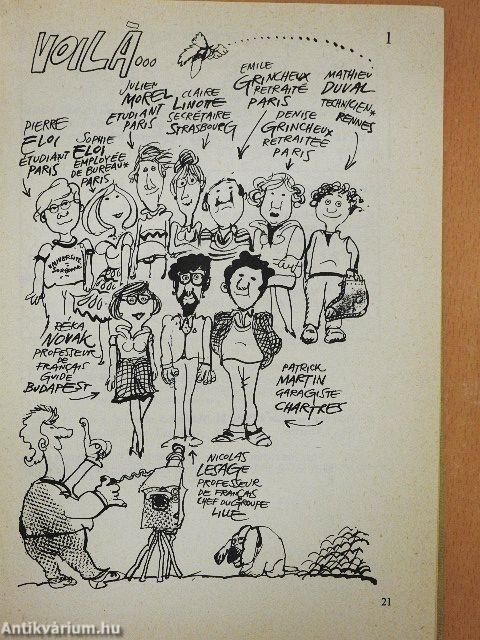 VOILÀ...
1
PIERRE
ELOI
ÉTUDIANT
PARIS
SOPHIE
ELOI
EMPLOYÉE
DE BUREAU*
PARIS
JULIEN
MOREL
ETUDIANT
PARIS
CLAIRE
LINOTE
SECRÉTAIRE
STRASBOURG
EMILE
GRINCHEUX
RETRAITÉ
PARIS
DENISE
GRINCHEUX
RETRAITÉE
PARIS
MATHIEU
DUVAL
TECHNICIEN*
RENNES
UNIVERSITÉ
SORBONNE
RÉKA
NOVAK
PROFESSEUR
DE
FRANÇAIS
GUIDE
BUDAPEST
PATRICK
MARTIN
GARAGISTE
CHARTRES
NICOLAS
LESAGE
PROFESSEUR
DE FRANÇAIS
CHEF DU GROUPE
LILLE
21
Antikvárium.hu